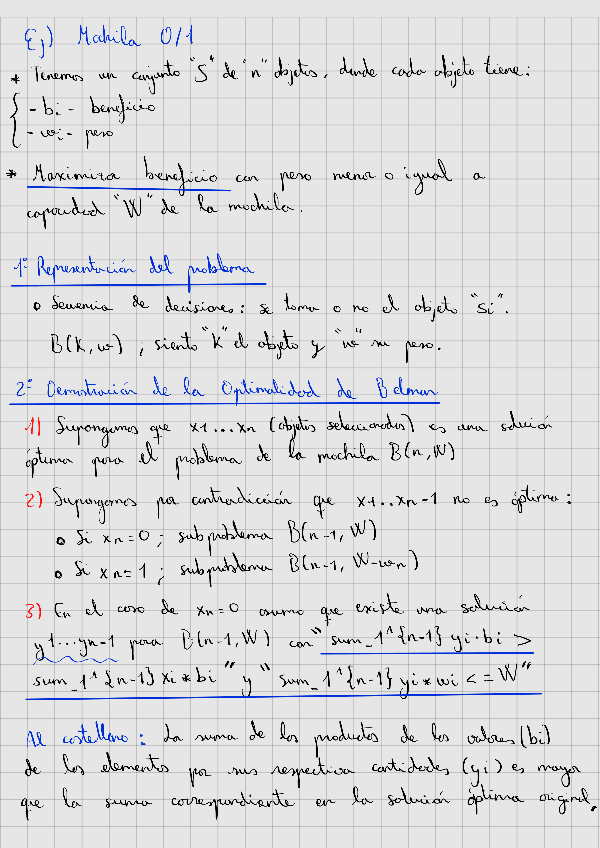 Ej) Mochila 0/1
* Tenemos un conjunto "S" de "n" objetos, donde cada objeto tiene:
- bi - beneficio
- wi - peso
* Maximizar beneficio con peso menor o igual a
capacidad "W" de la mochila.
1º Representación del problema
o Secuencia de decisiones: se toma o no el objeto "si".
B(K, w) , siento "K" el objeto y "w" su peso.
2º Demostración de la Optimalidad de Belman
1) Supongamos que x1...xn (objetos seleccionados) es una solución
óptima para el problema de la mochila B(n, W)
2) Supongamos por contradicción que x1..xn-1 no es óptima:
o Si xn=0 ; subproblema B(n-1, W)
o Si xn=1 ; subproblema B(n-1, W-wn)
3) En el caso de xn=0 asumo que existe una solución
y1...yn-1 para B(n-1, W) con "sum_1^{n-1} yi·bi >
sum_1^{n-1} xi*bi" y "sum_1^{n-1} yi*wi <= W"
Al castellano: La suma de los productos de los valores (bi)
de los elementos por sus respectiva cantidades (yi) es mayor
que la suma correspondiente en la solución óptima original.